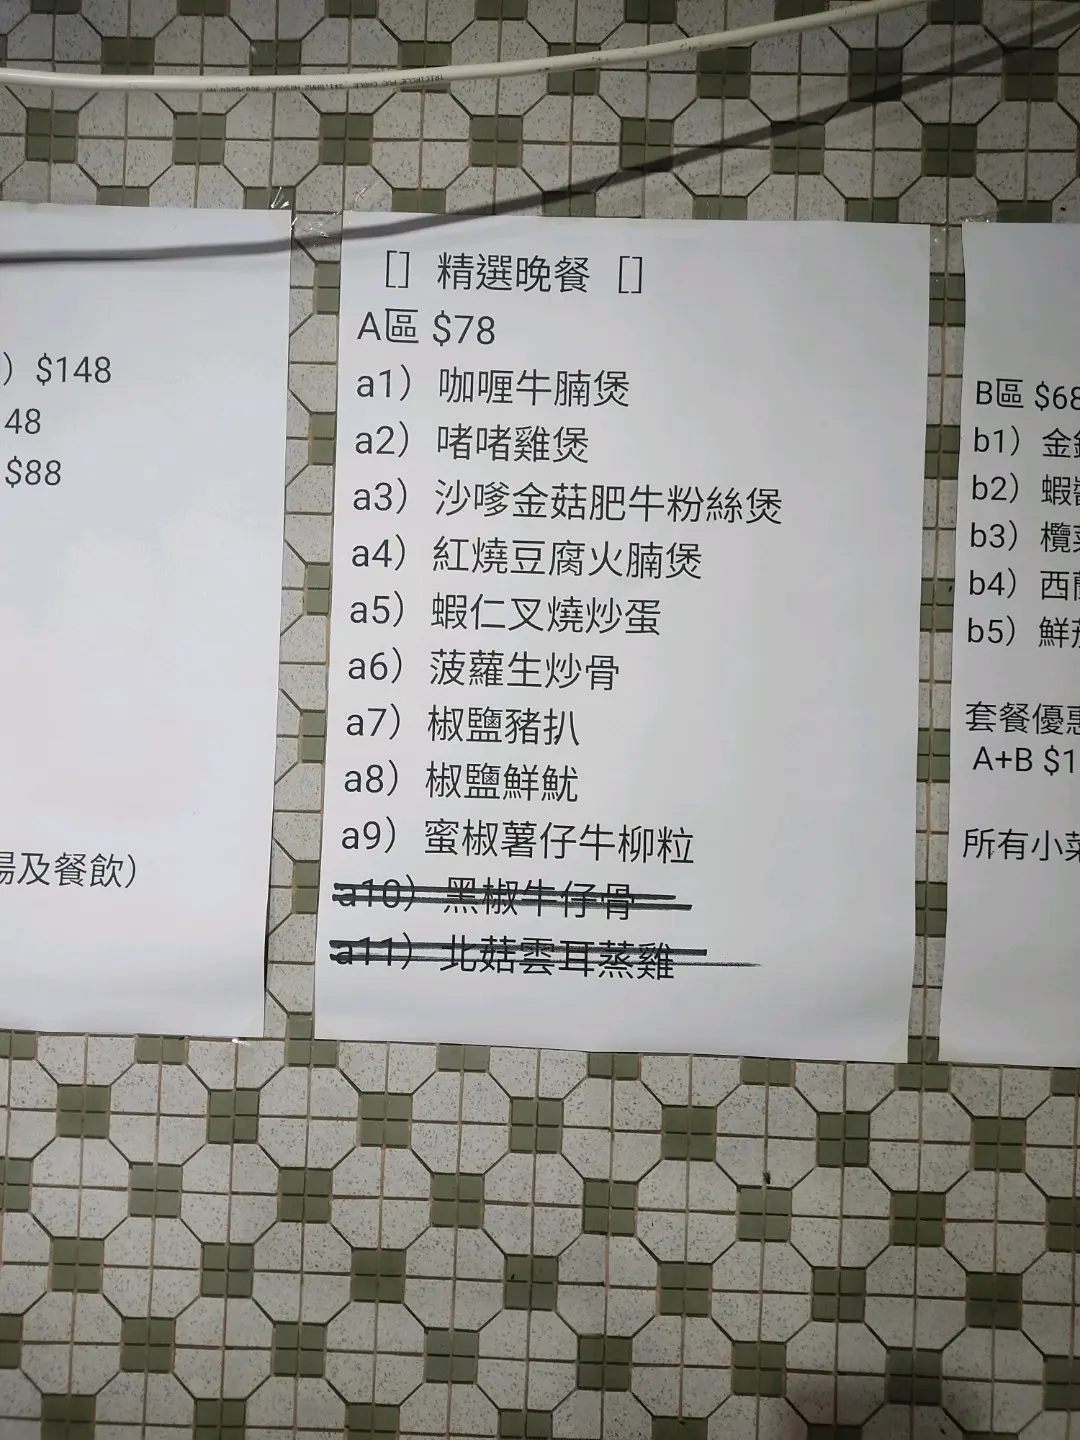 $148
48
$88
湯及餐飲）
[] 精選晚餐 []
A區 $78
a1）咖喱牛腩煲
a2）啫啫雞煲
a3）沙嗲金菇肥牛粉絲煲
a4）紅燒豆腐火腩煲
a5）蝦仁叉燒炒蛋
a6）菠蘿生炒骨
a7）椒鹽豬扒
a8）椒鹽鮮魷
a9）蜜椒薯仔牛柳粒
a10）黑椒牛仔骨
a11）北菇雲耳蒸雞
B區 $68
b1）金
b2）蝦
b3）欖菜
b4）西蘭
b5）鮮茄
套餐優惠
A+B $1
所有小菜